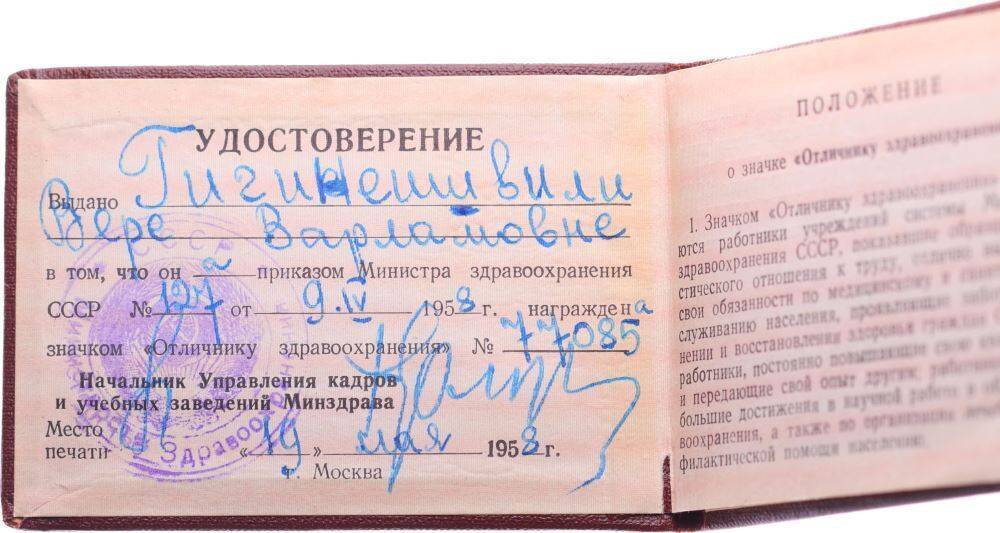 УДОСТОВЕРЕНИЕ
Выдано Гигинеишвили
Вере Варламовне
в том, что он а приказом Министра здравоохранения
СССР № 127 от 9.IV 1958 г. награждена
значком «Отличнику здравоохранения» № 77085
Начальник Управления кадров
и учебных заведений Минздрава
Место
печати «19» мая 1958 г.
г. Москва
СССР
Здравоохранения
ПОЛОЖЕНИЕ
о значке «Отличнику здравоохранения
1. Значком «Отличнику здравоохранения»
ются работники учреждений системы
здравоохранения СССР, показавшие
стического отношения к труду, отлично
свои обязанности по медицинскому и
служиванию населения, проявляющие
нении и восстановлении здоровья граждан
работники, постоянно повышающие свою
и передающие свой опыт другим, работники
большие достижения в научной работе в
воохранения, а также по организации
филактической помощи населению.